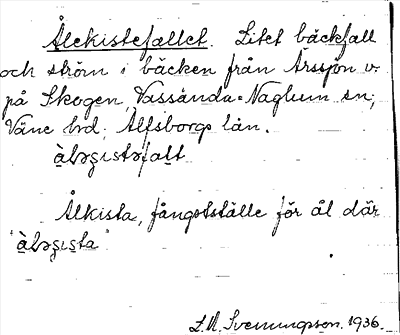 Ålekistefallet. Litet bäckfall
och ström i bäcken från Årssjön v.
på Skogen, Vassända-Naglum sn,
Väne hd, Älfsborgs län.
Ålkista, fångstställe för ål där
L.M. Svenungsson 1936.